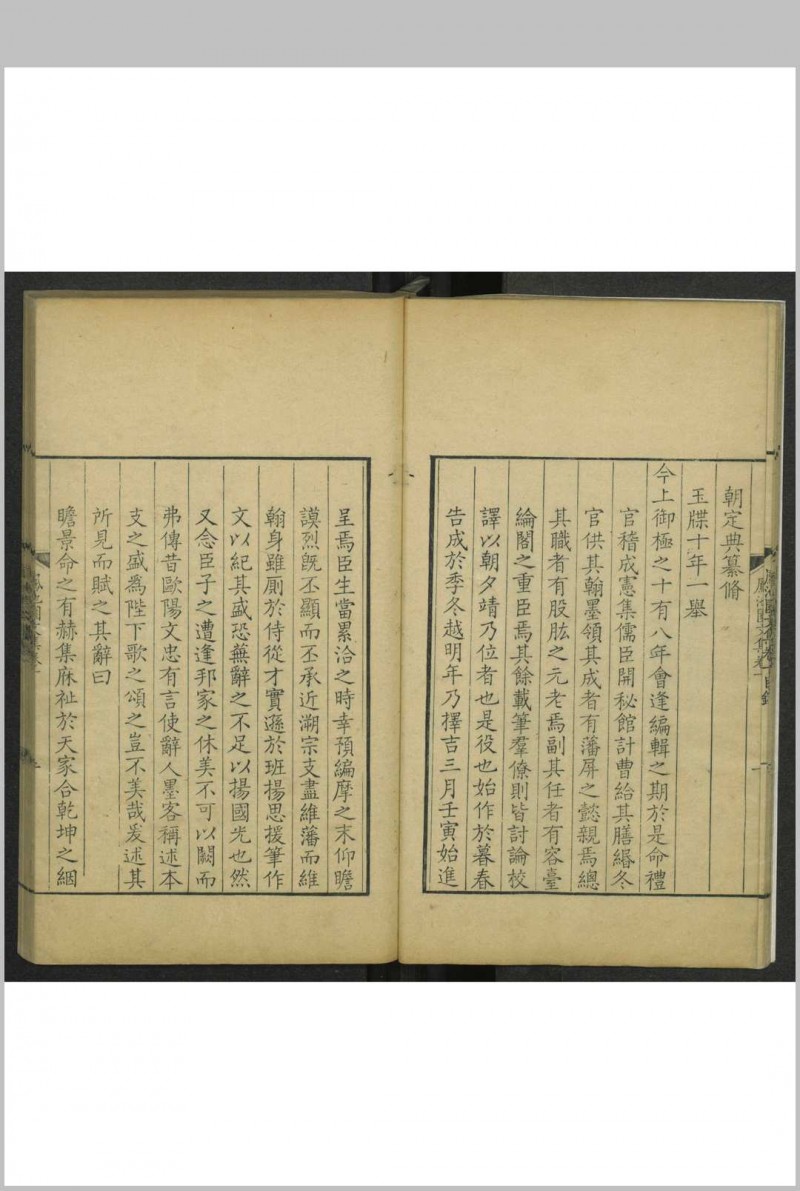 朝定典纂脩
玉牒十年一舉
今上御極之十有八年會逢編輯之期於是命禮
官稽成憲集儒臣開秘館計曹給其膳繙冬
官供其翰墨領其成者有藩屏之懿親焉總
其職者有股肱之元老焉副其任者有容臺
綸閣之重臣焉其餘載筆羣僚則皆討論校
譯以朝夕靖乃位者也是役也始作於暮春
告成於季冬越明年乃擇吉三月壬寅始進
呈焉臣生當累洽之時幸預編摩之末仰瞻
謨烈旣丕顯而丕承近溯宗支盡維藩而維
翰身雖廁於侍從才實遜於班揚思援筆作
文以紀其盛恐蕪辭之不足以揚國光也然
又念臣子之遭逢邦家之休美不可以闕而
弗傳昔歐陽文忠有言使辭人墨客稱述本
支之盛爲陛下歌之頌之豈不美哉爰述其
所見而賦之其辭曰
瞻景命之有赫集庥祉於天家合乾坤之絪